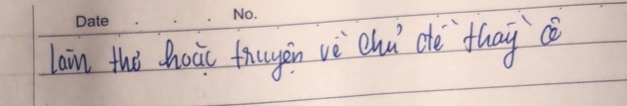 Date . . . No.
Làm thơ hoặc truyện về chủ đề thầy cô